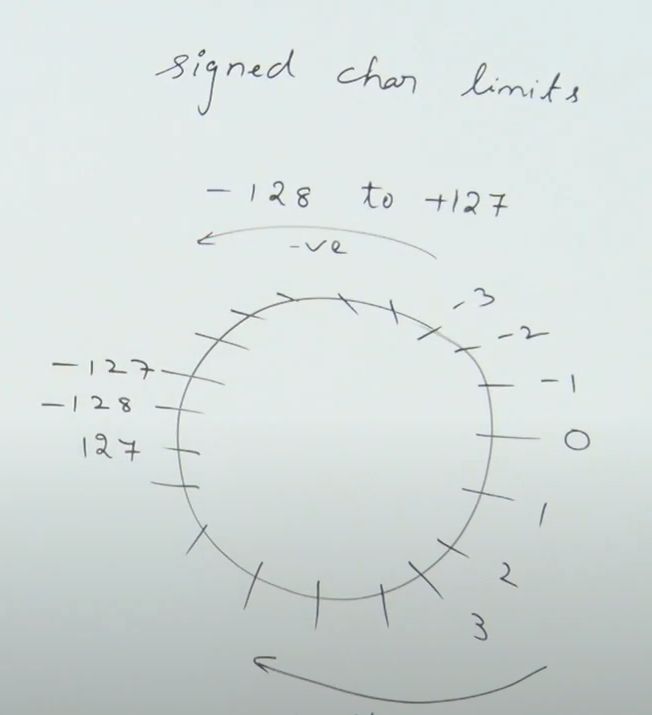 signed char limits
-128 to +127
-ve
-3
-2
-127
-1
-128
0
127
1
2
3